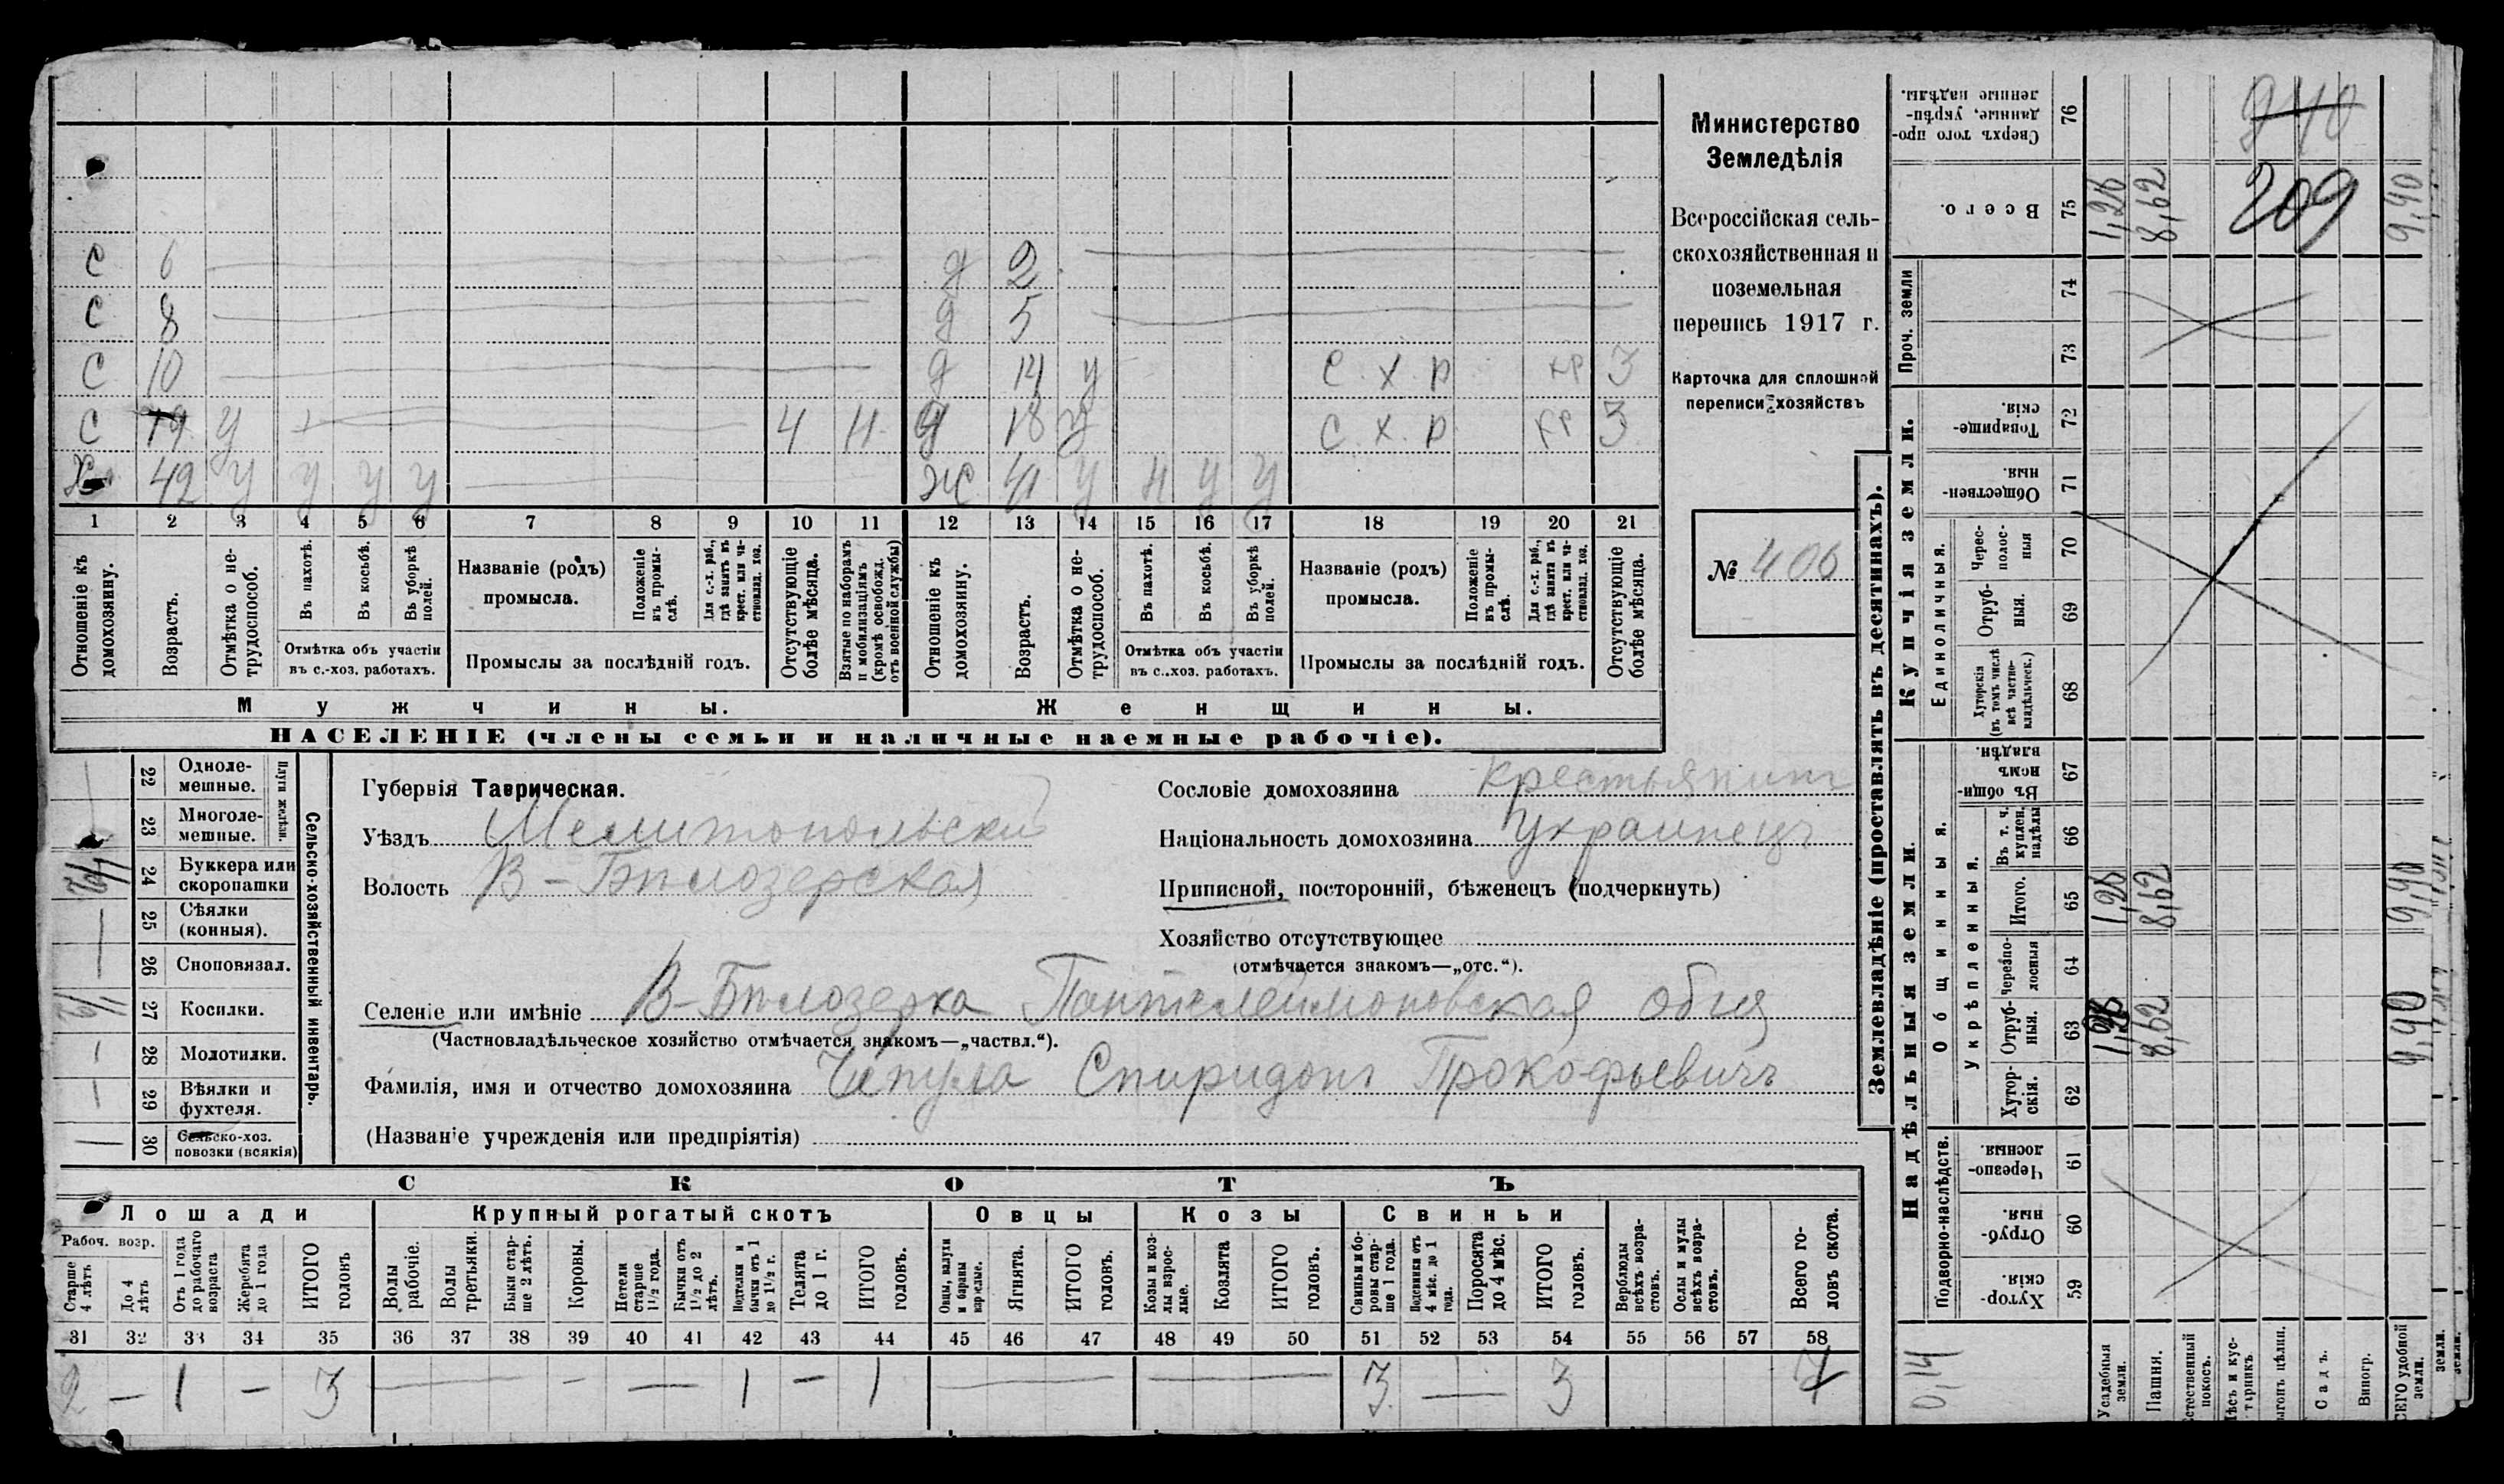 С 6 д 2
С 8 д 5
С 10 д 14 у с.х.р кр 3
С 19 у 4 Н д 18 у с.х.р кр 3
Х 42 у у у у ж 41 у н у у
1 2 3 4 5 6 7 8 9 10 11 12 13 14 15 16 17 18 19 20 21
Отношеніе къ домохозяину.
Возрастъ.
Отмѣтка о нетрудоспособ.
Въ пахотѣ.
Въ косьбѣ.
Въ уборкѣ полей.
Отмѣтка объ участіи
въ с.-хоз. работахъ.
Названіе (родъ)
промысла.
Положеніе въ промыслѣ.
Для с.-х. раб., гдѣ занятъ въ крест. или частновлад. хоз.
Промыслы за послѣдній годъ.
Отсутствующіе болѣе мѣсяца.
Взятые по наборамъ и мобилизаціямъ (кромѣ освобожд. отъ военной службы)
Отношеніе къ домохозяину.
Возрастъ.
Отмѣтка о нетрудоспособ.
Въ пахотѣ.
Въ косьбѣ.
Въ уборкѣ полей.
Отмѣтка объ участіи
въ с..хоз. работахъ.
Названіе (родъ)
промысла.
Положеніе въ промыслѣ.
Для с.-х. раб., гдѣ занята въ крест. или частновлад. хоз.
Промыслы за послѣдній годъ.
Отсутствующіе болѣе мѣсяца.
Мужчины. Женщины.
НАСЕЛЕНІЕ (члены семьи и наличные наемные рабочіе).
Министерство
Земледѣлія
Всероссійская сель-
скохозяйственная и
поземельная
перепись 1917 г.
Карточка для сплошной
переписи хозяйствъ
№ 406
Сельско-хозяйственный инвентарь.
Плуги желѣзн.
22 Одноле-
мешные.
23 Многоле-
мешные.
24 Буккера или
скоропашки
25 Сѣялки
(конныя).
26 Сноповязал.
27 Косилки.
28 Молотилки.
29 Вѣялки и
фухтеля.
30 Сельско-хоз.
повозки (всякія)
Губернія Таврическая.
Уѣздъ Мелитопольскій
Волость В-Бѣлозерская
Сословіе домохозяина крестьянинъ
Національность домохозяина Украинецъ
Приписной, посторонній, бѣженецъ (подчеркнуть)
Хозяйство отсутствующее
(отмѣчается знакомъ—„отс.“).
Селеніе или имѣніе В-Бѣлозерка Пантелеймоновская общ
(Частновладѣльческое хозяйство отмѣчается знакомъ—„частвл.“).
Фамилія, имя и отчество домохозяина Чепула Спиридонъ Прокофьевичъ
(Названіе учрежденія или предпріятія)
СКОТЪ
Лошади Крупный рогатый скотъ Овцы Козы Свиньи
Рабоч. возр.
Старше 4 лѣтъ
До 4 лѣтъ
Отъ 1 года до рабочаго возраста
Жеребята до 1 года
ИТОГО головъ
Волы рабочіе.
Волы третьяки.
Быки старше 2 лѣтъ.
Коровы.
Нетели старше 1½ года.
Бычки отъ 1½ до 2 лѣтъ.
Подтелки и бычки отъ 1 до 1½ г.
Телята до 1 г.
ИТОГО головъ.
Овцы, валухи и бараны взрослые.
Ягнята.
ИТОГО головъ.
Козы и козлы взрослые.
Козлята
ИТОГО головъ.
Свиньи и боровы старше 1 года.
Подсвинки отъ 4 мѣс. до 1 года.
Поросята до 4 мѣс.
ИТОГО головъ.
Верблюды всѣхъ возрастовъ.
Ослы и мулы всѣхъ возрастовъ.
Всего головъ скота.
31 32 33 34 35 36 37 38 39 40 41 42 43 44 45 46 47 48 49 50 51 52 53 54 55 56 57 58
2 — 1 — 3 — — — 1 — 1 — — 3 — 3 7
Землевладѣніе (проставлять въ десятинахъ).
Сверхъ того проданные, укрѣпленные надѣлы. 76
Всего. 75 1,28 8,62 209 9,90
Проч. земли 74 73
Купчія земли.
Товарищескія. 72
Общественныя. 71
Единоличныя.
Чересполосныя 70
Отрубныя. 69
Хуторскія (въ томъ числѣ всѣ частновладѣльческ.) 68
Надѣльныя земли.
Въ общемъ владѣн. 67
Общинныя.
Укрѣпленныя.
Въ т. ч. куплен. надѣлы 66
Итого. 65 1,28 8,62 9,90
Черезполосныя 64
Отрубныя. 63 8,62 9,90
Хуторскія. 62
Подворно-наслѣдств.
Черезполосныя. 61
Отрубныя. 60
Хуторскія. 59
0,14
Усадебныя земли.
Пашня.
Естественный покосъ.
Лѣсъ и кустарникъ.
Выгонъ цѣлин.
Садъ.
Виногр.
ВСЕГО удобной земли.